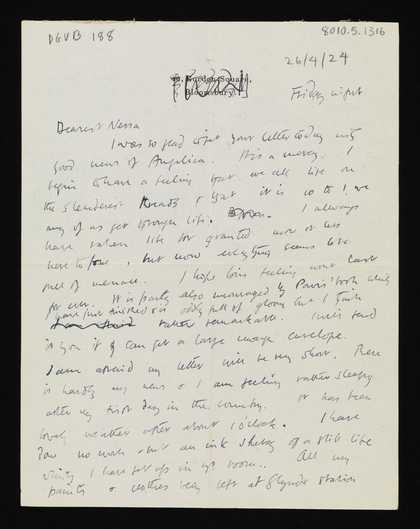 DGVB 188
8010.5.1316
26/4/24
Gordon Square,
Bloomsbury.
Friday night
Dearest Nessa
I was so glad to get your letter today with
good news of Angelica. It is a mercy. I
begin to have a feeling that we all live on
the slenderest threads & that it is 10 to 1 we
any of us get through life. I always
have taken life for granted more or less
here to fore, but now everything seems
full of menace. I hope this feeling wont last
for ever. It is partly also encouraged by book which
I have just finished & is oddly full of gloom but I think
rather remarkable. I will send
it you if I can get a large enough envelope.
I am afraid my letter will be very short. There
is hardly any news & I am feeling rather sleepy
after my first day in the country. It has been
lovely weather after about 1 o'clock. I have
done no work but an ink sketch of a still life
which I have set up in my room. All my
paints & clothes being left at Glynde station